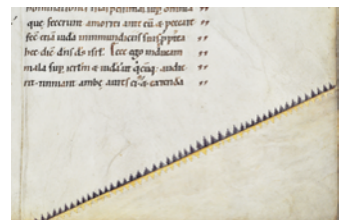 que fecerunt amorrei ante eū & peccare
fec̄ etiā iuda inmundiciis suis ꝓpt̄ea
hec dic̄ dn̄s ds̄ isrł. Ecce ego inducam
mala sup̱ & iudā ut audie
rit tinniant ambę aures &